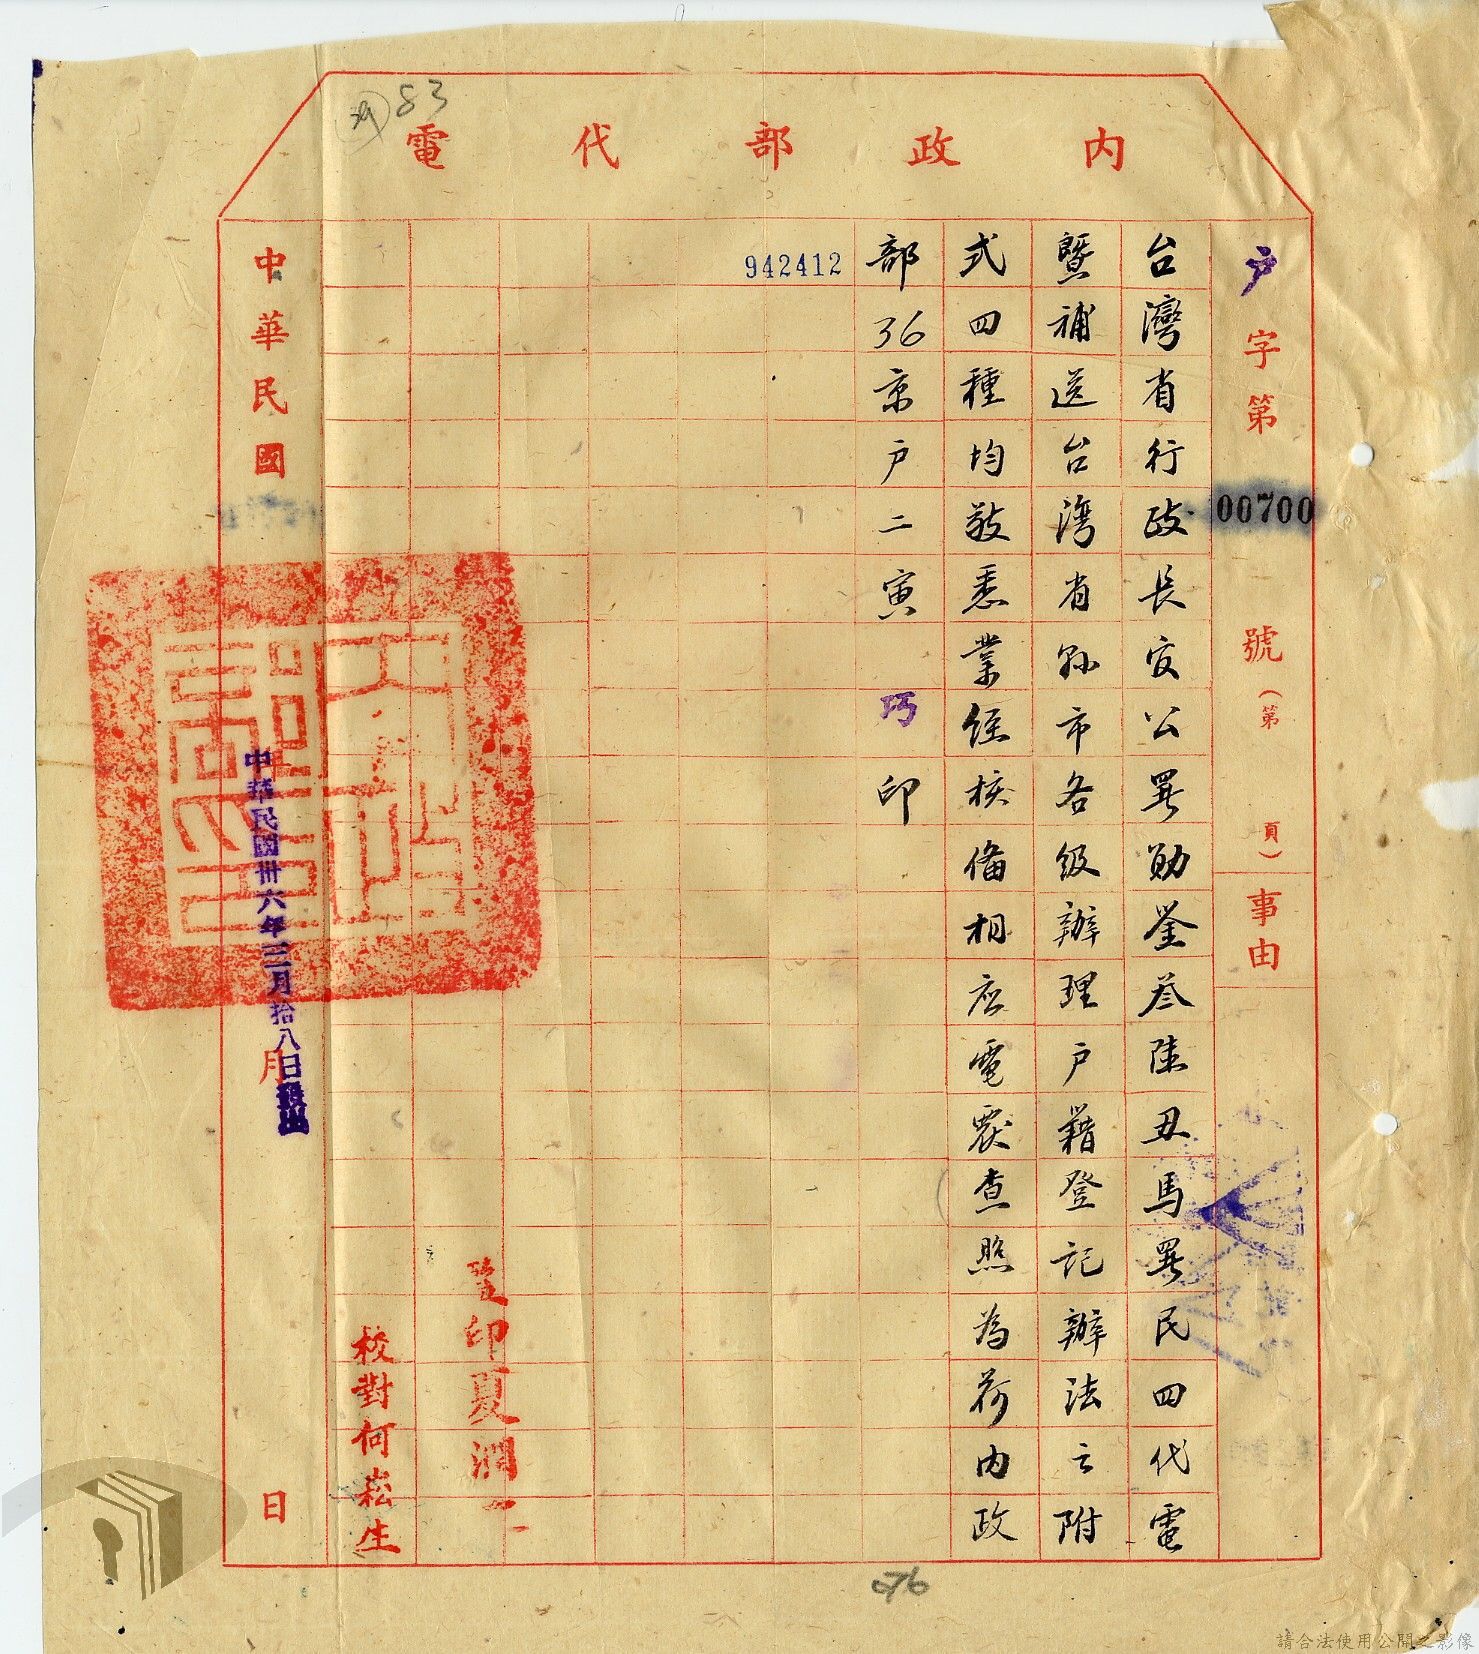 83
內政部代電
戶字第00700號(第 頁)事由
台灣省行政長官公署勛鑒叁陸丑馬署民四代電
暨補送台灣省縣市各級辦理戶籍登記辦法之附
式四種均敬悉業經核備相應電覆查照為荷內政
部36京戶二寅巧印
942412
印夏潤一
校對何崧生
中華民國 月 日
中華民國卅六年三月拾八日發出
請合法使用公開之影像